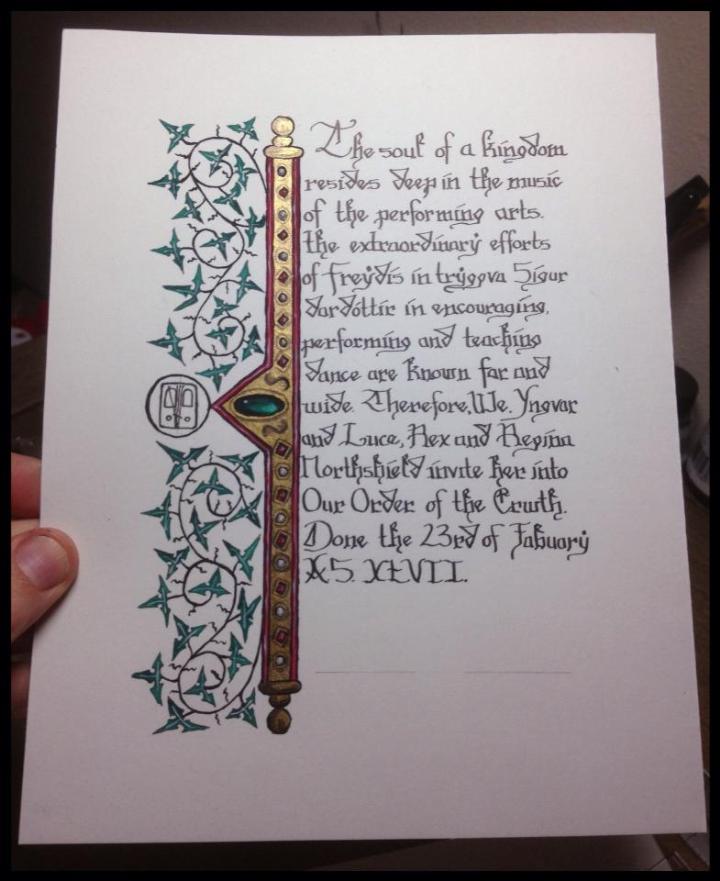 The soul of a kingdom
resides deep in the music
of the performing arts.
the extraordinary efforts
of Freydis in tryggva Sigur
dardóttir in encouraging,
performing and teaching
dance are known far and
wide. Therefore, We, Yngvar
and Luce, Rex and Regina
Northshield invite her into
Our Order of the Crwth.
Done the 23rd of Jabuary
AS. XLVII.